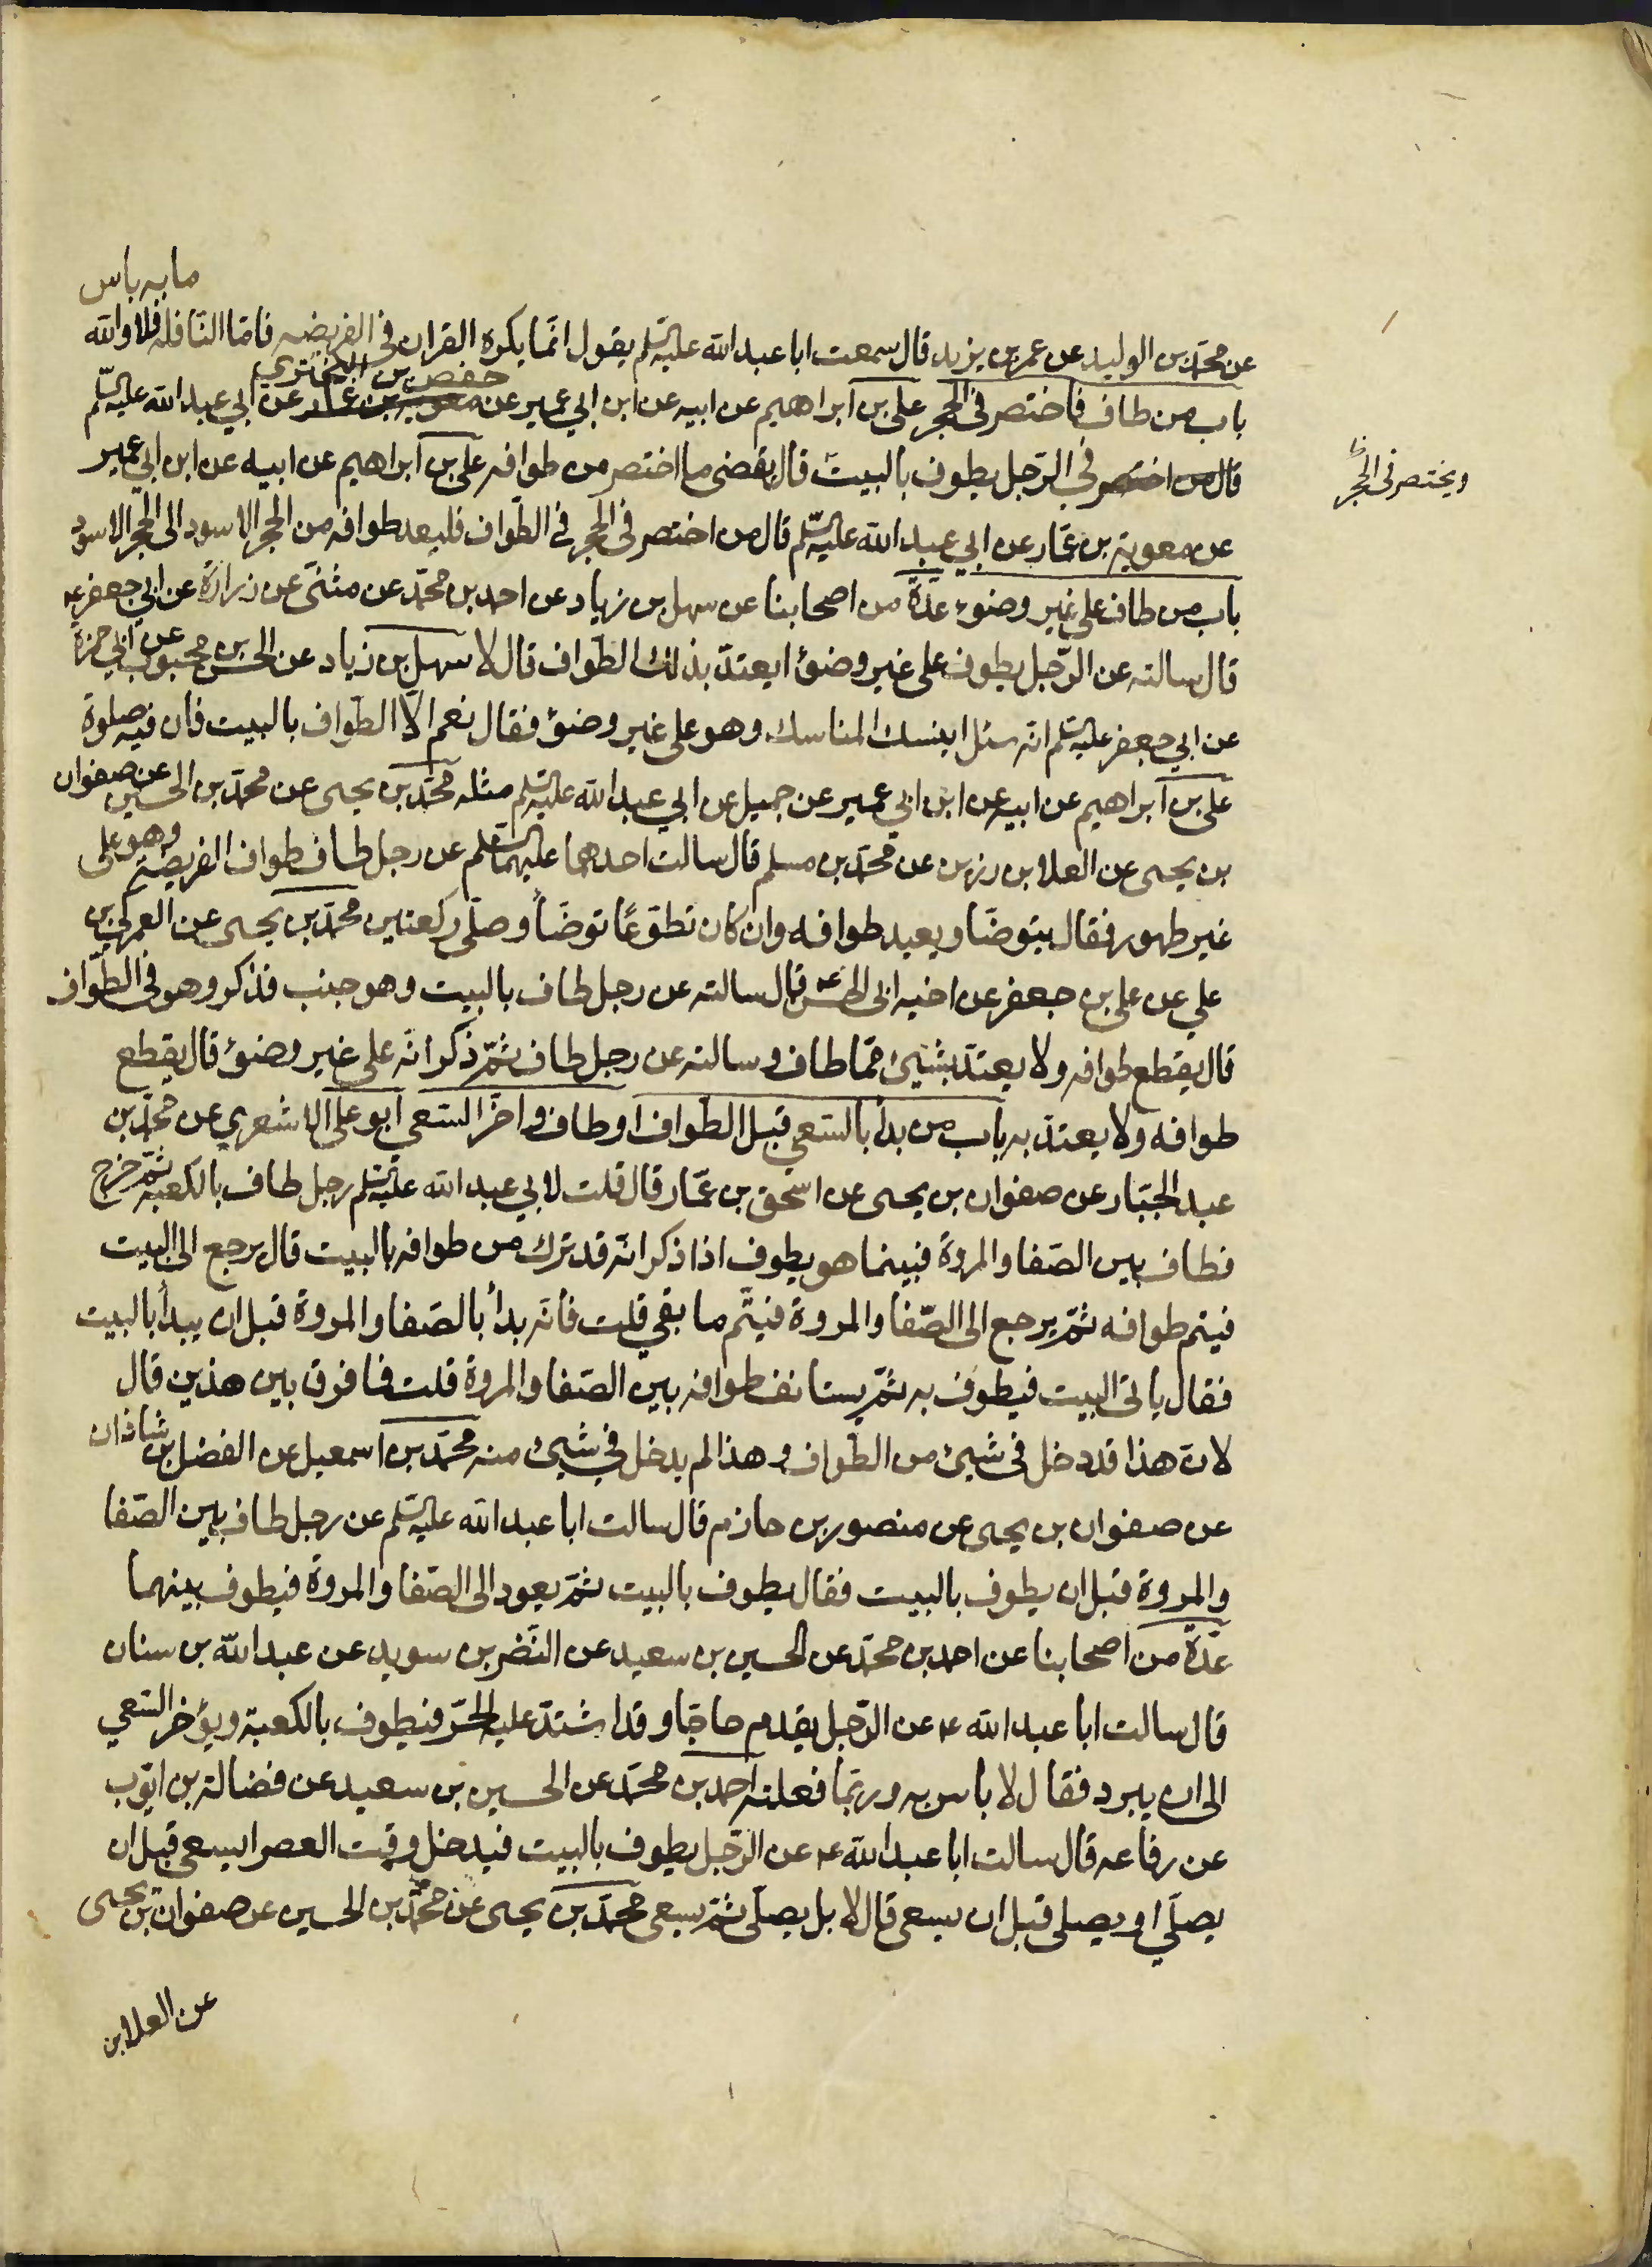 ما به باس
عن محمّد بن الوليد عن عمر بن يزيد قال سمعت ابا عبد الله عليه السّلم يقول انّما يكره القران في الفريضه فامّا النّافله فلا والله
باب من طاف فاختصر في الحجر علي بن ابراهيم عن ابيه عن ابن ابي عمير عن معوية بن عمّار حفص بن البختري عن ابي عبد الله عليه السّلم
قال من اختصر في الرّجل يطوف بالبيت قال يقضي ما اختصر من طوافه علي بن ابراهيم عن ابيه عن ابن ابي عمير
ويختصر في الحجر
عن معوية بن عمّار عن ابي عبد الله عليه السّلم قال من اختصر في الحجر في الطّواف فليعد طوافه من الحجر الاسود الى الحجر الاسود
باب من طاف على غير وضوء عدّة من اصحابنا عن سهل بن زياد عن احمد بن محمّد عن مثنّى عن زرارة عن ابي جعفر ع
قال سالته عن الرّجل يطوف على غير وضوء ايعتدّ بذلك الطّواف قال لا سهل بن زياد عن الحسن بن محبوب عن ابي حمزة
عن ابي جعفر عليه السّلم انّه سئل اينسك المناسك وهو على غير وضوء فقال نعم الّا الطّواف بالبيت فان فيه صلوة
علي بن ابراهيم عن ابيه عن ابن ابي عمير عن جميل عن ابي عبد الله عليه السّلم مثله محمّد بن يحيى عن محمّد بن الحسين عن صفوان
بن يحيى عن العلا بن رزين عن محمّد بن مسلم قال سالت احدهما عليهما السّلم عن رجل طاف طواف الفريضة وهو على
غير طهور فقال يتوضّا ويعيد طوافه وان كان تطوّعًا توضّأ وصلّى ركعتين محمّد بن يحيى عن العمركي بن
علي عن علي بن جعفر عن اخيه ابي الحسن ع قال سالته عن رجل طاف بالبيت وهو جنب فذكر وهو في الطّواف
قال يقطع طوافه ولا يعتدّ بشيئ ممّا طاف وسالته عن رجل طاف ثمّ ذكر انّه على غير وضوء قال يقطع
طوافه ولا يعتدّ به باب من بدأ بالسّعي قبل الطّواف او طاف واخّر السّعي ابو علي الاشعري عن محمّد بن
عبد الجبّار عن صفوان بن يحيى عن اسحق بن عمّار قال قلت لابي عبد الله عليه السّلم رجل طاف بالكعبة ثمّ خرج
فطاف بين الصّفا والمروة فبينما هو يطوف اذا ذكر انّه قد ترك من طوافه بالبيت قال يرجع الى البيت
فيتم طوافه ثمّ يرجع الى الصّفا والمروة فيتّم ما بقي قلت فانّه بدأ بالصّفا والمروة قبل ان يبدأ بالبيت
فقال ياتي البيت فيطوف به ثمّ يستانف طوافه بين الصّفا والمروة قلت فما فرق بين هذين قال
لانّ هذا قد دخل في شيئ من الطّواف وهذا لم يدخل في شيئ منه محمّد بن اسمعيل عن الفضل بن شاذان
عن صفوان بن يحيى عن منصور بن حازم قال سالت ابا عبد الله عليه السّلم عن رجل طاف بين الصّفا
والمروة قبل ان يطوف بالبيت فقال يطوف بالبيت ثمّ يعود الى الصّفا والمروة فيطوف بينهما
عدّة من اصحابنا عن احمد بن محمّد عن الحسين بن سعيد عن النّضر بن سويد عن عبد الله بن سنان
قال سالت ابا عبد الله ع عن الرّجل يقدم حاجّا وقد اشتدّ عليه الحرّ فيطوف بالكعبة ويؤخر السّعي
الى ان يبرد فقال لا باس به وربّما فعلته احمد بن محمّد عن الحسين بن سعيد عن فضالة بن ايّوب
عن رفاعه قال سالت ابا عبد الله ع عن الرّجل يطوف بالبيت فيدخل وقت العصر ايسعى قبل ان
يصلّي او يصلي قبل ان يسعى قال لا بل يصلّي ثمّ يسعى محمّد بن يحيى عن محمّد بن الحسين عن صفوان بن يحيى
عن العلا بن